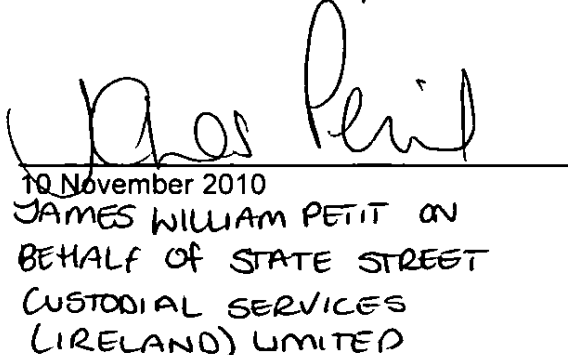 James Petit
10 November 2010
JAMES WILLIAM PETIT ON
BEHALF OF STATE STREET
CUSTODIAL SERVICES
(IRELAND) LIMITED